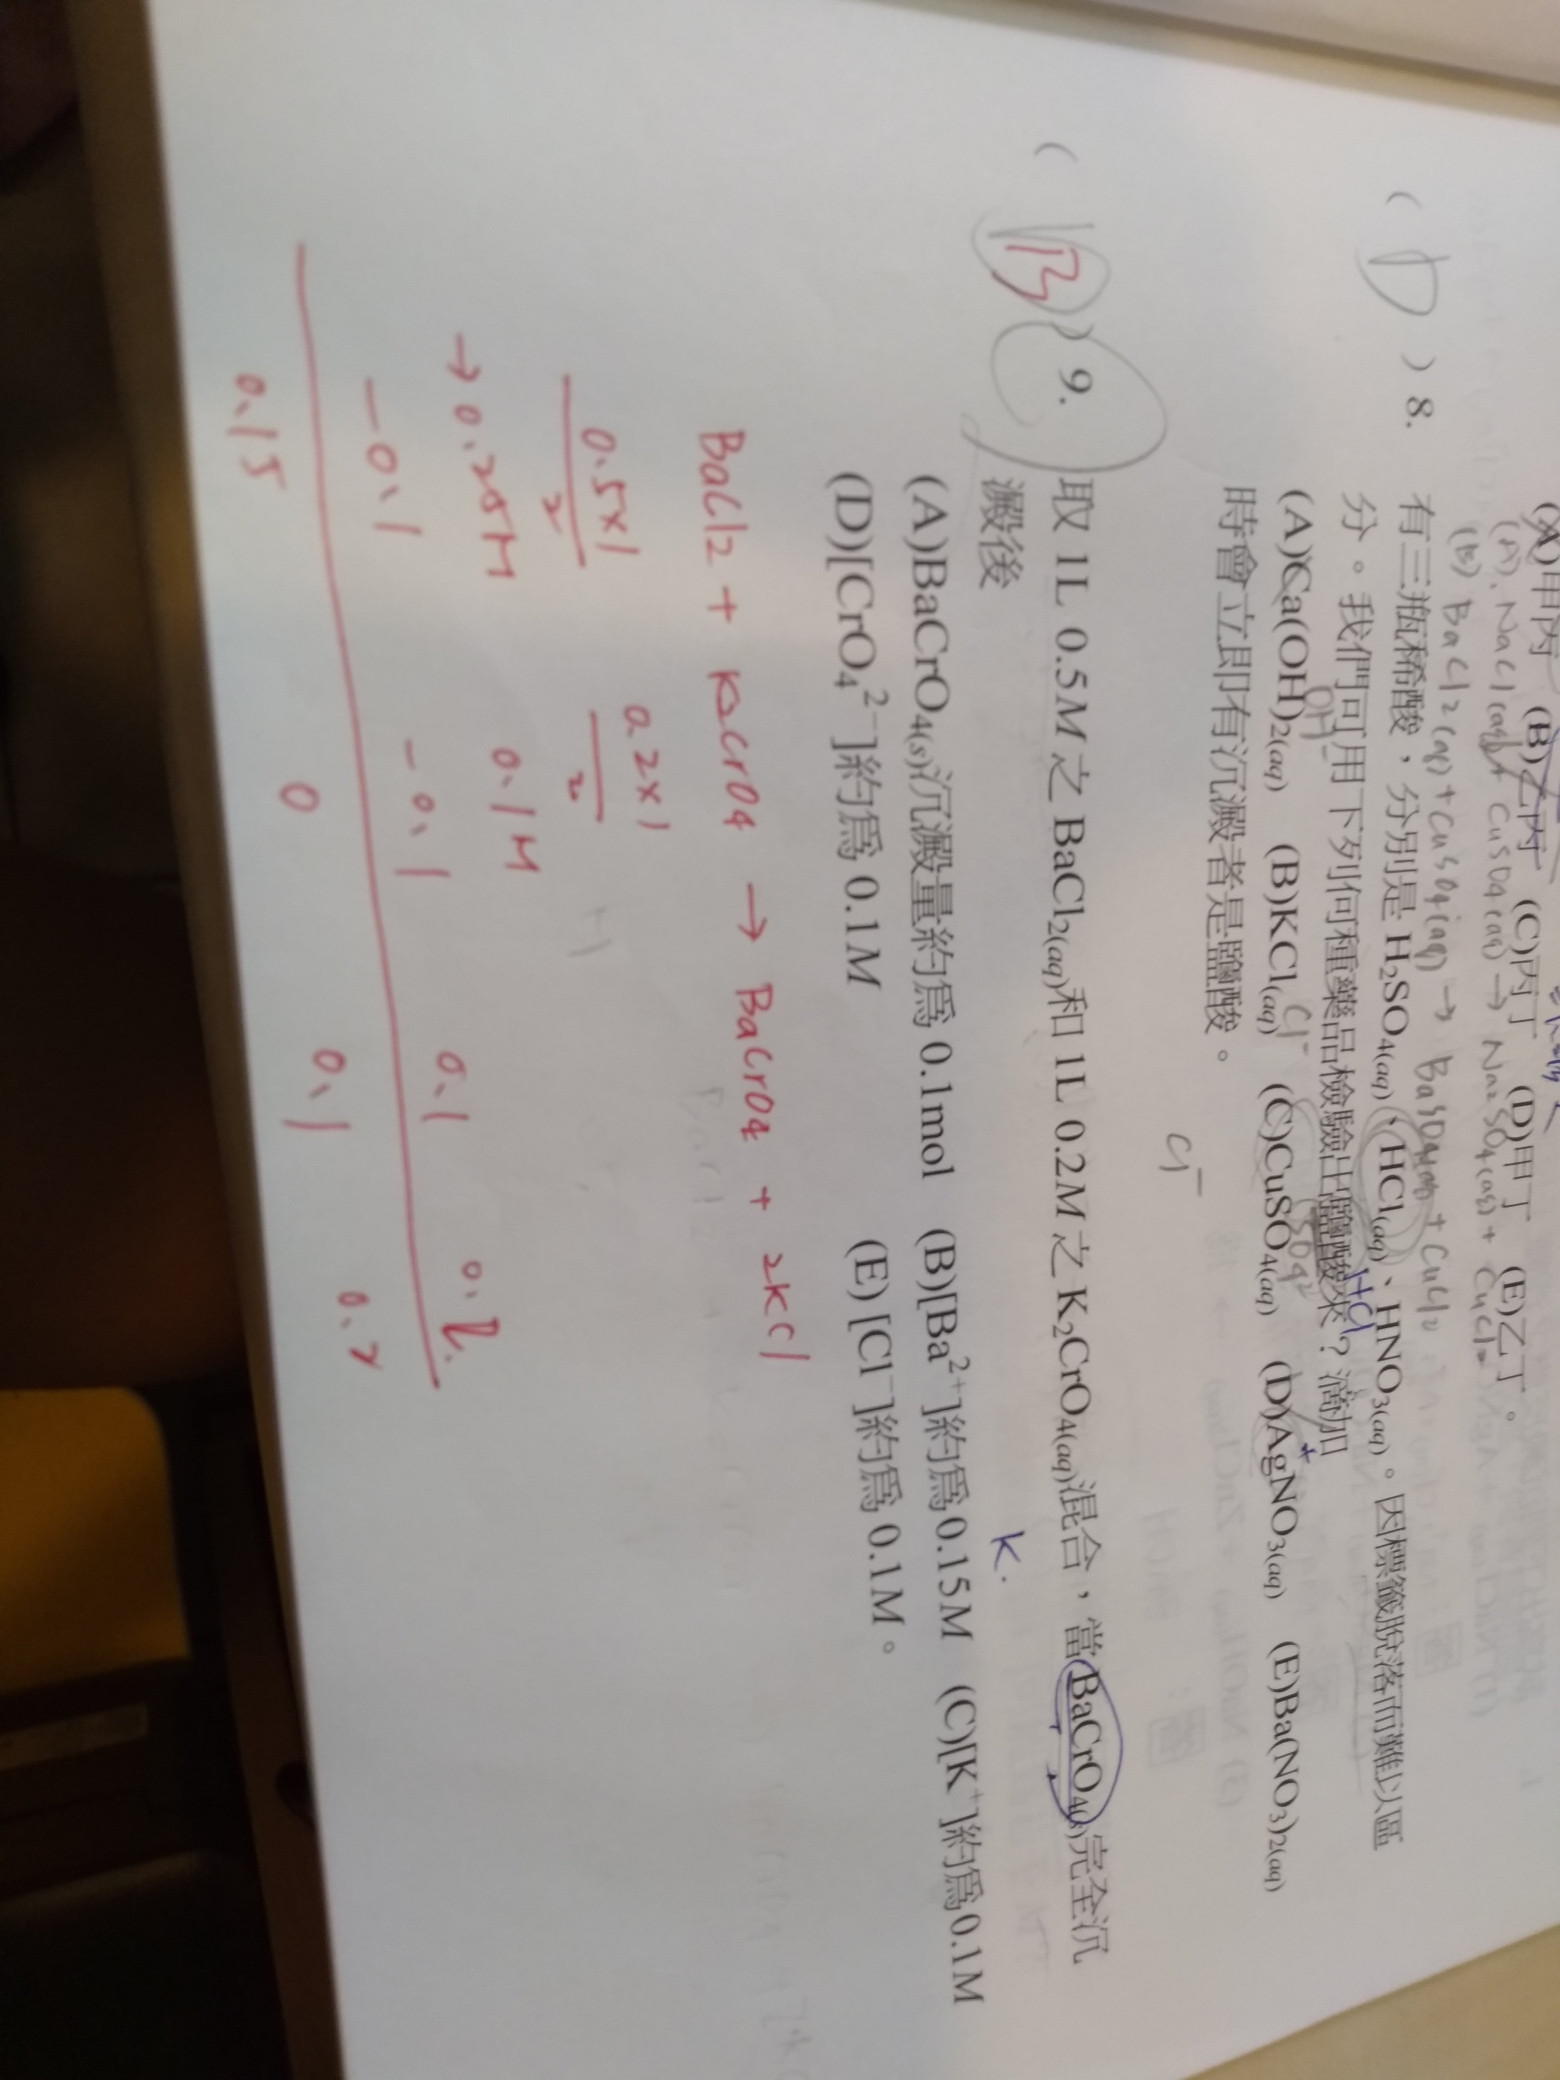 (A)甲丙 (B)乙丙 (C)丙丁 (D)甲丁 (E)乙丁。
(A). NaCl(aq) + CuSO4(aq) → Na2SO4(aq) + CuCl2
(B) BaCl2(aq) + CuSO4(aq) → BaSO4 + CuCl2
( D ) 8. 有三瓶稀酸，分別是 H₂SO₄(aq)、HCl(aq)、HNO₃(aq)。因標籤脫落而難以區
HCl
分。我們可用下列何種藥品檢驗出鹽酸來？滴加
OH⁻ Cl⁻ SO4²⁻ +
(A)Ca(OH)₂(aq) (B)KCl(aq) (C)CuSO₄(aq) (D)AgNO₃(aq) (E)Ba(NO₃)₂(aq)
時會立即有沉澱者是鹽酸。
Cl⁻
( B ) 9. 取 1L 0.5M 之 BaCl₂(aq)和 1L 0.2M 之 K₂CrO₄(aq)混合，當BaCrO₄(s)完全沉
澱後
K.
(A)BaCrO₄(s)沉澱量約為 0.1mol (B)[Ba²⁺]約為0.15M (C)[K⁺]約為0.1M
(D)[CrO₄²⁻]約為 0.1M (E) [Cl⁻]約為0.1M。
BaCl2 + K2CrO4 → BaCrO4 + 2KCl
0.5×1 0.2×1
2 2
→ 0.25M 0.1M
-0.1 -0.1 0.1 0.2
0.15 0 0.1 0.2